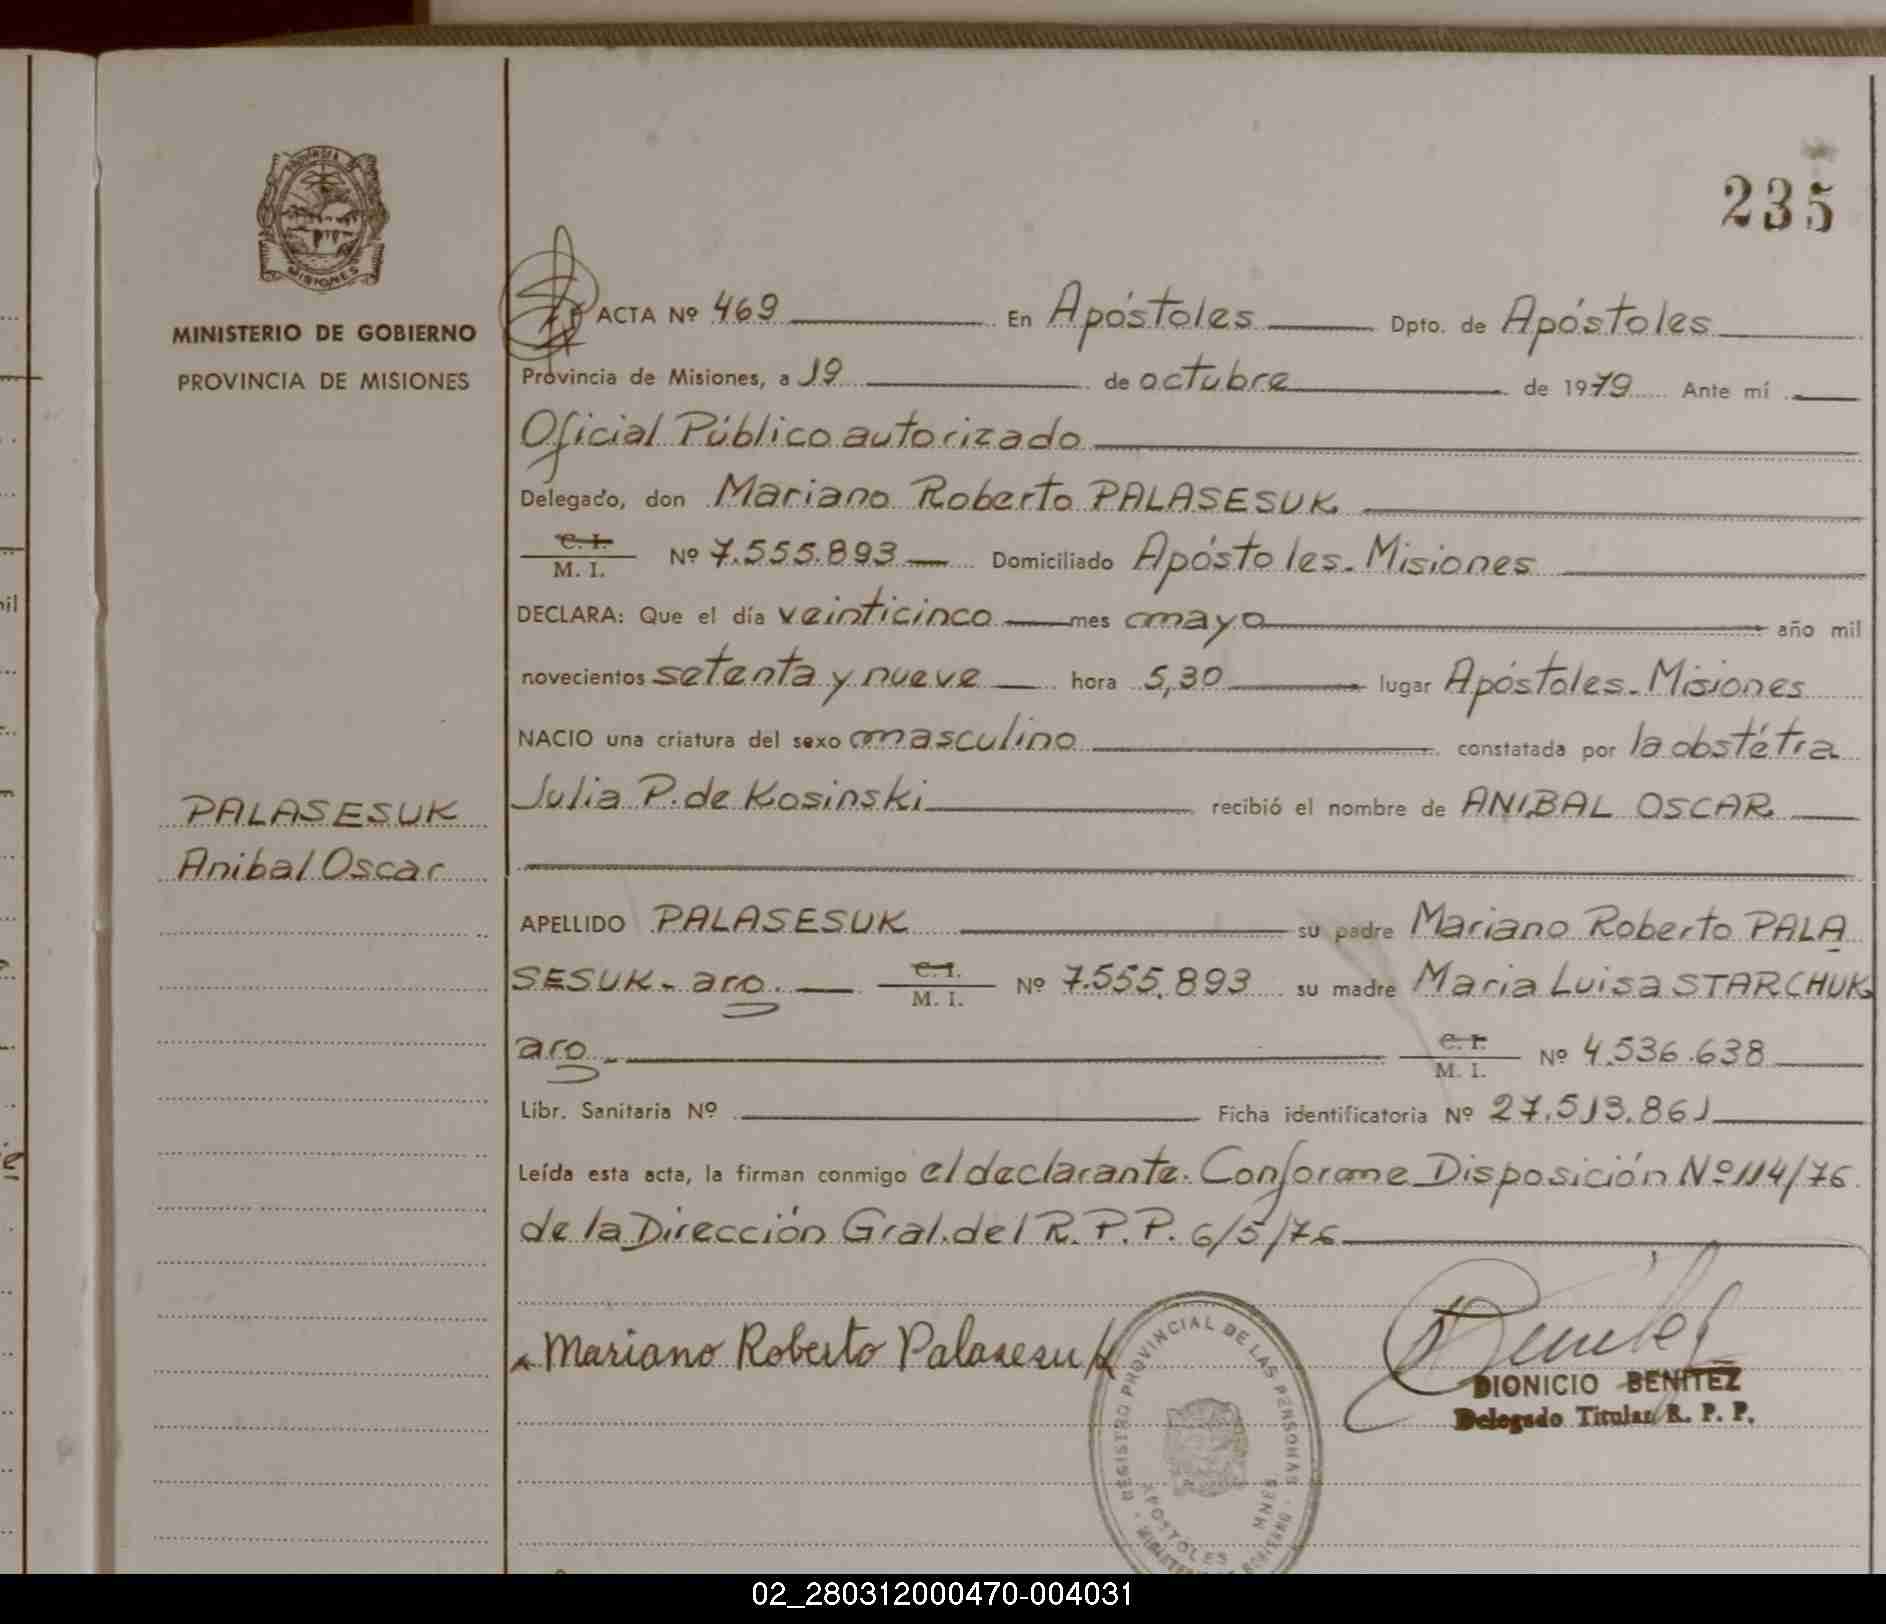 235
PROVINCIA DE
MISIONES
MINISTERIO DE GOBIERNO
PROVINCIA DE MISIONES
PALASESUK
Anibal Oscar
ACTA Nº 469 En Apóstoles Dpto. de Apóstoles
Provincia de Misiones, a 19 de octubre de 1979 Ante mí
Oficial Público autorizado
Delegado, don Mariano Roberto PALASESUK
C. I.
M. I. Nº 7.555.893 Domiciliado Apóstoles-Misiones
DECLARA: Que el día veinticinco mes mayo año mil
novecientos setenta y nueve hora 5,30 lugar Apóstoles-Misiones
NACIO una criatura del sexo masculino constatada por la obstétra
Julia P. de Kosinski recibió el nombre de ANIBAL OSCAR
APELLIDO PALASESUK su padre Mariano Roberto PALA
SESUK- aro. C. I.
M. I. Nº 7.555.893 su madre Maria Luisa STARCHUK
aro.- C. I.
M. I. Nº 4.536.638
Libr. Sanitaria Nº Ficha identificatoria Nº 27.513.861
Leída esta acta, la firman conmigo el declarante. Conforme Disposición Nº 114/76
de la Dirección Gral. del R.P.P. 6/5/76
Mariano Roberto Palasesuk
Benitez
DIONICIO BENITEZ
Delegado Titular R. P. P.
REGISTRO PROVINCIAL DE LAS PERSONAS
APOSTOLES MNES
02_280312000470-004031